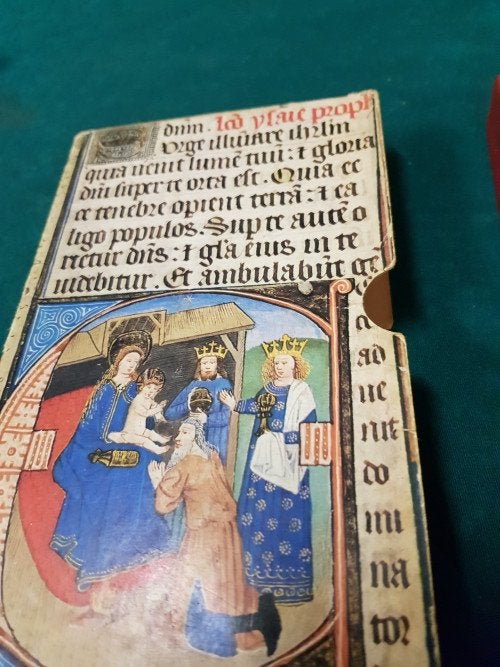 dnm. Lcō ysaie proph
Surge illuīare ihrlm
quia uenit lumē tuū: ⁊ gloria
dñi super te orta est. Quia ec
ce tenebre opient terrā: ⁊ ca
ligo populos. Sup te autē o
rietur dñs: ⁊ gla eius in te
uidebitur. Et ambulabūt gē
ad
ue
nit
do
mi
na
tor